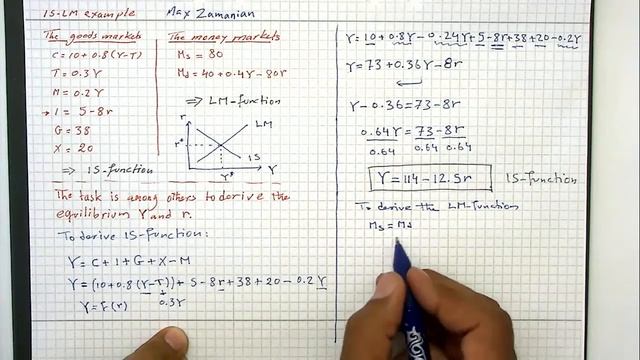 IS-LM example
Max Zamanian
The goods markets
C = 10 + 0.8(Y-T)
T = 0.3Y
M = 0.2Y
→ I = 5 - 8r
G = 38
X = 20
⇒ IS-function
The money markets
Ms = 80
Md = 40 + 0.4Y - 80r
⇒ LM-function
r
LM
r*
IS
Y*
Y
The task is among others to derive the
equilibrium Y and r.
To derive IS-function:
Y = C + I + G + X - M
Y = (10 + 0.8(Y-T)) + 5 - 8r + 38 + 20 - 0.2Y
Y = f(r)
0.3Y
Y = 10 + 0.8Y - 0.24Y + 5 - 8r + 38 + 20 - 0.2Y
Y = 73 + 0.36Y - 8r
Y - 0.36 = 73 - 8r
0.64Y = 73 - 8r
0.64 0.64 0.64
Y = 114 - 12.5r
IS-function
To derive the LM-function
Ms = Md